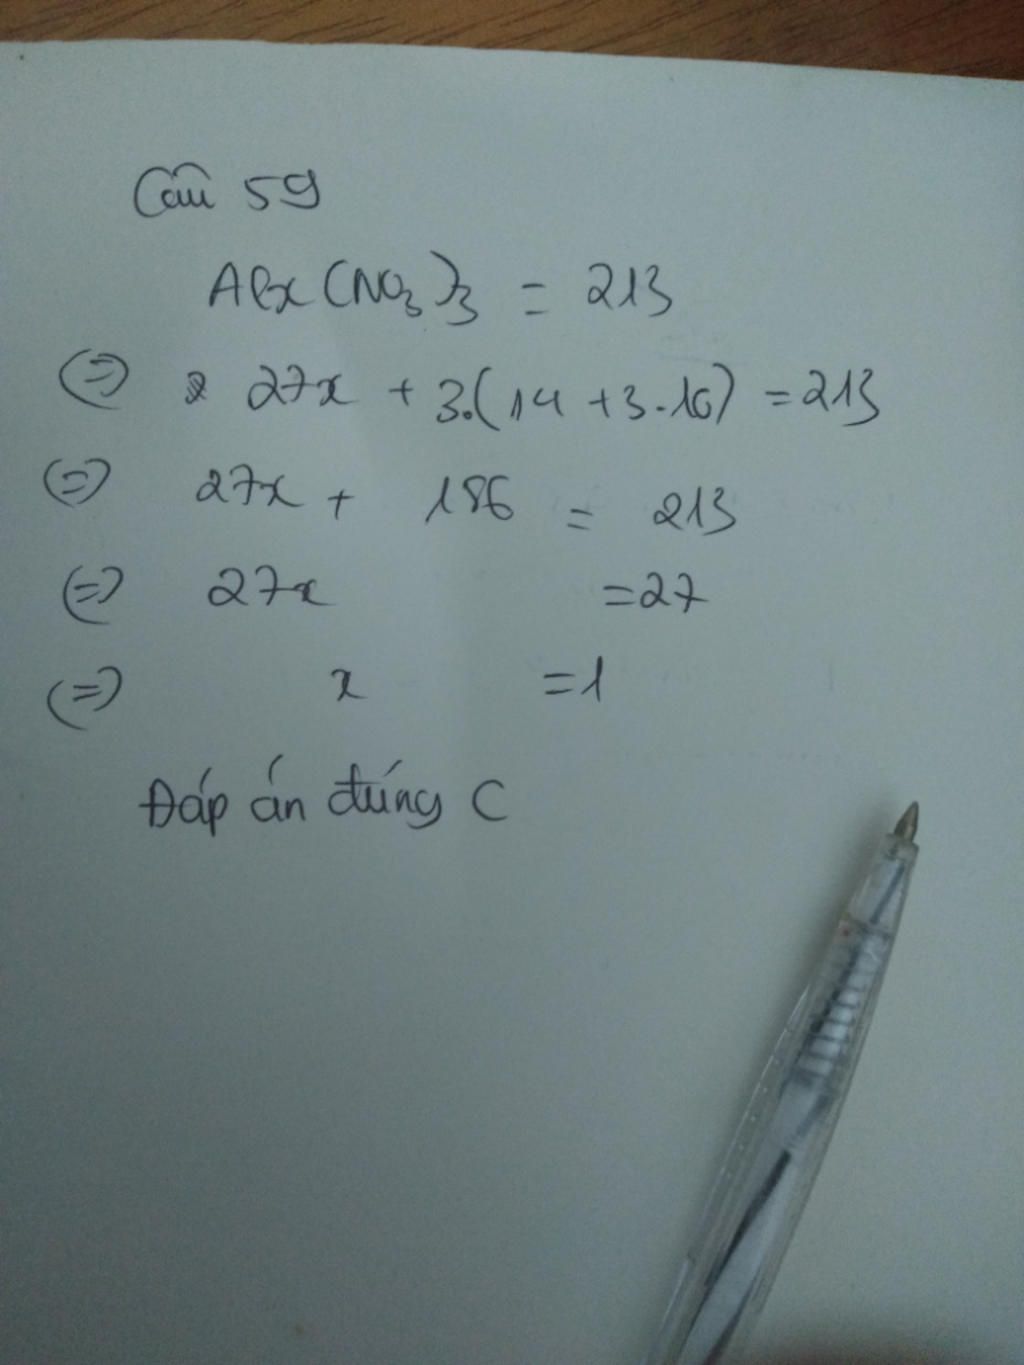 Câu 59
Alx(NO3)3 = 213
(=) 27x + 3.(14 + 3.16) = 213
(=) 27x + 186 = 213
(=) 27x = 27
(=) x = 1
Đáp án đúng C